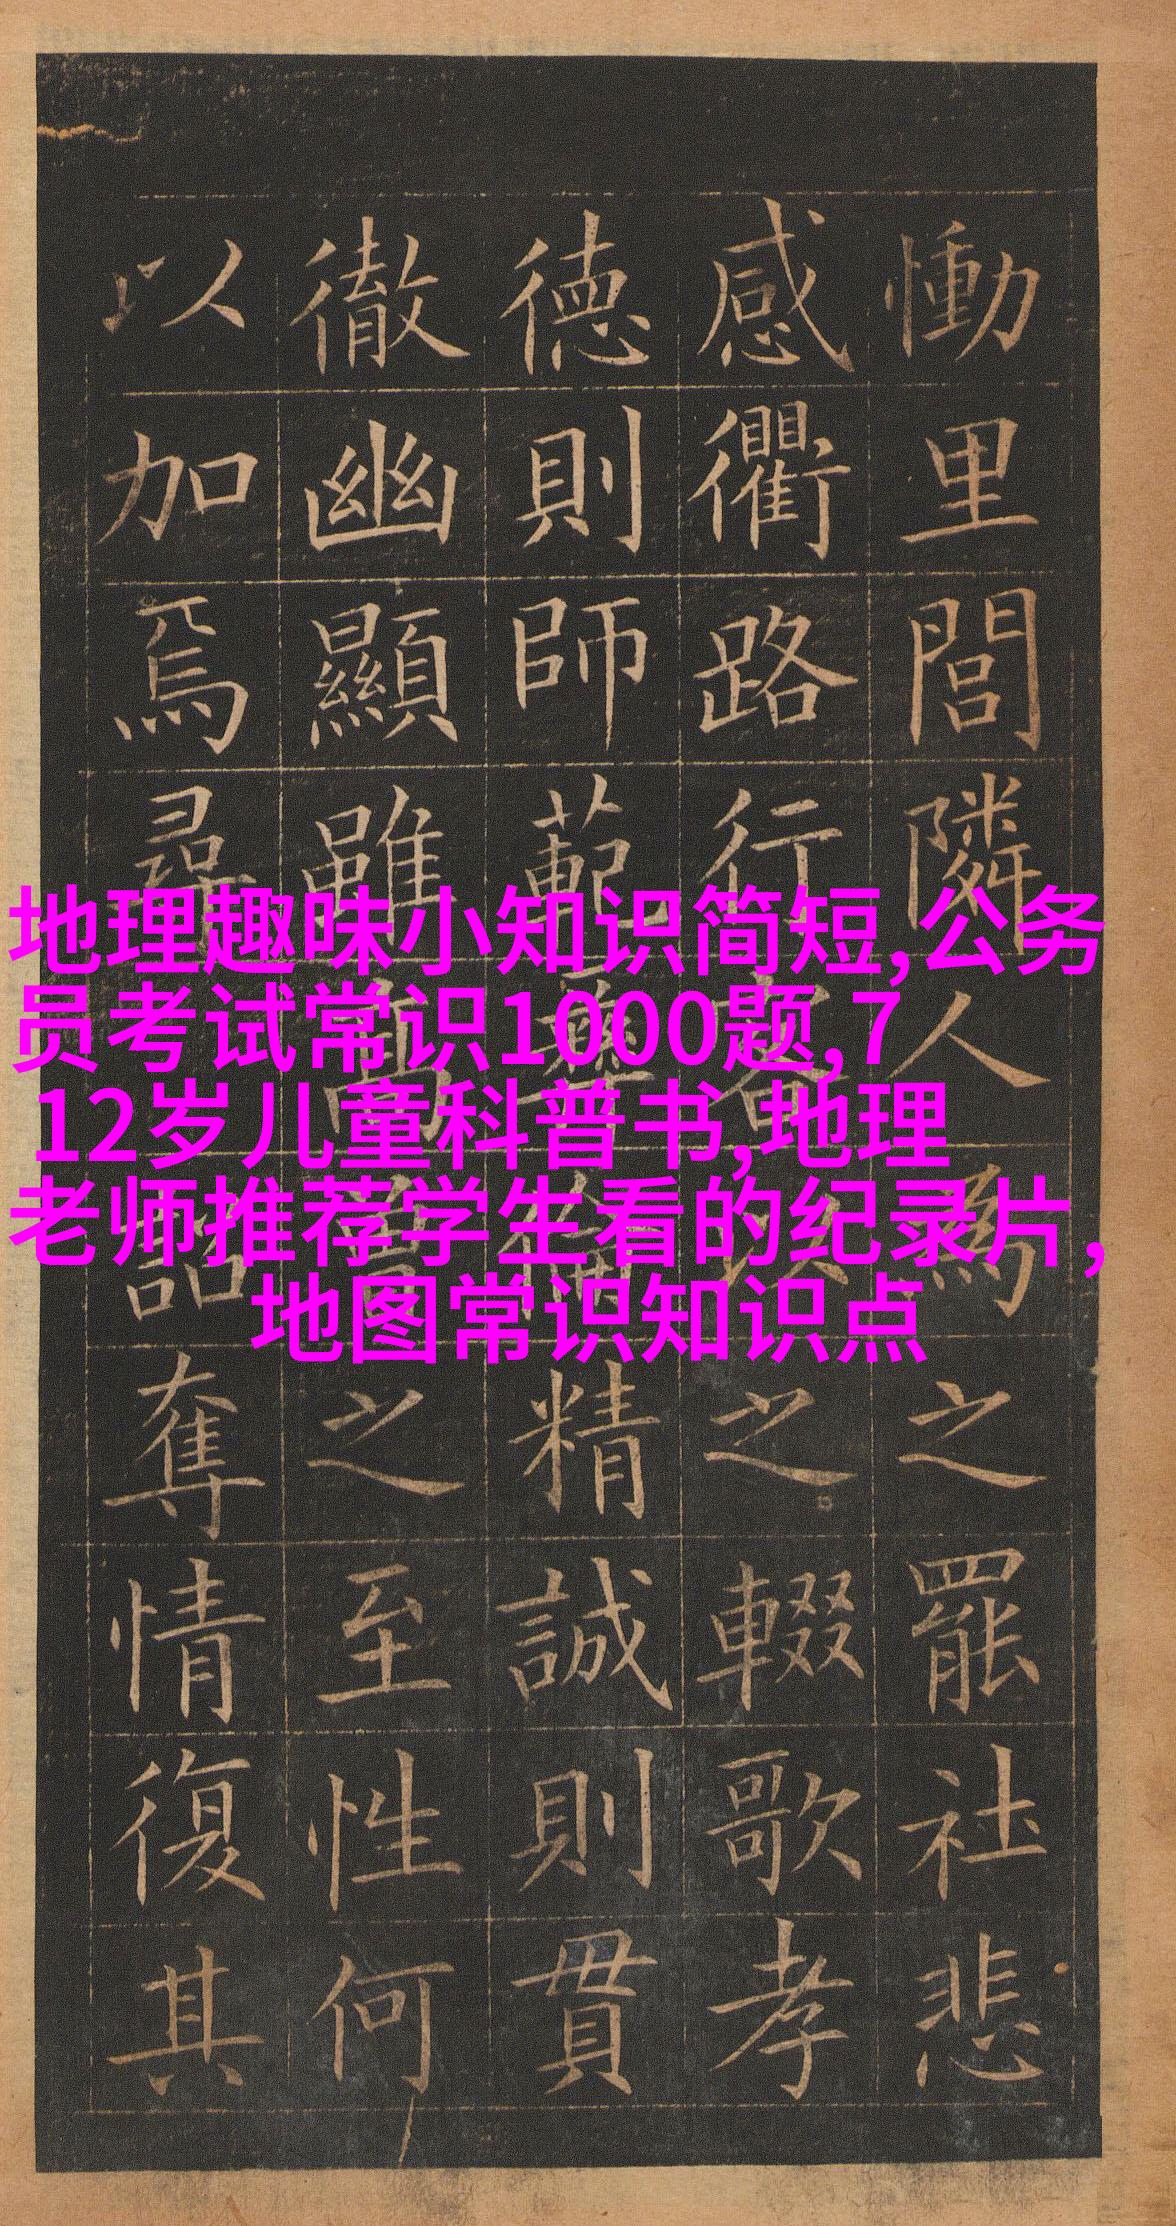 慟里閭隣人為之罷社悲
感衢路行者以之輟歌孝
德則師範彝倫精誠則貫
徹幽顯雖高曾之至性何
以加焉尋詔奪情復其
地理趣味小知识简短,公务
员考试常识1000题,7
12岁儿童科普书,地理
老师推荐学生看的纪录片,
地图常识知识点